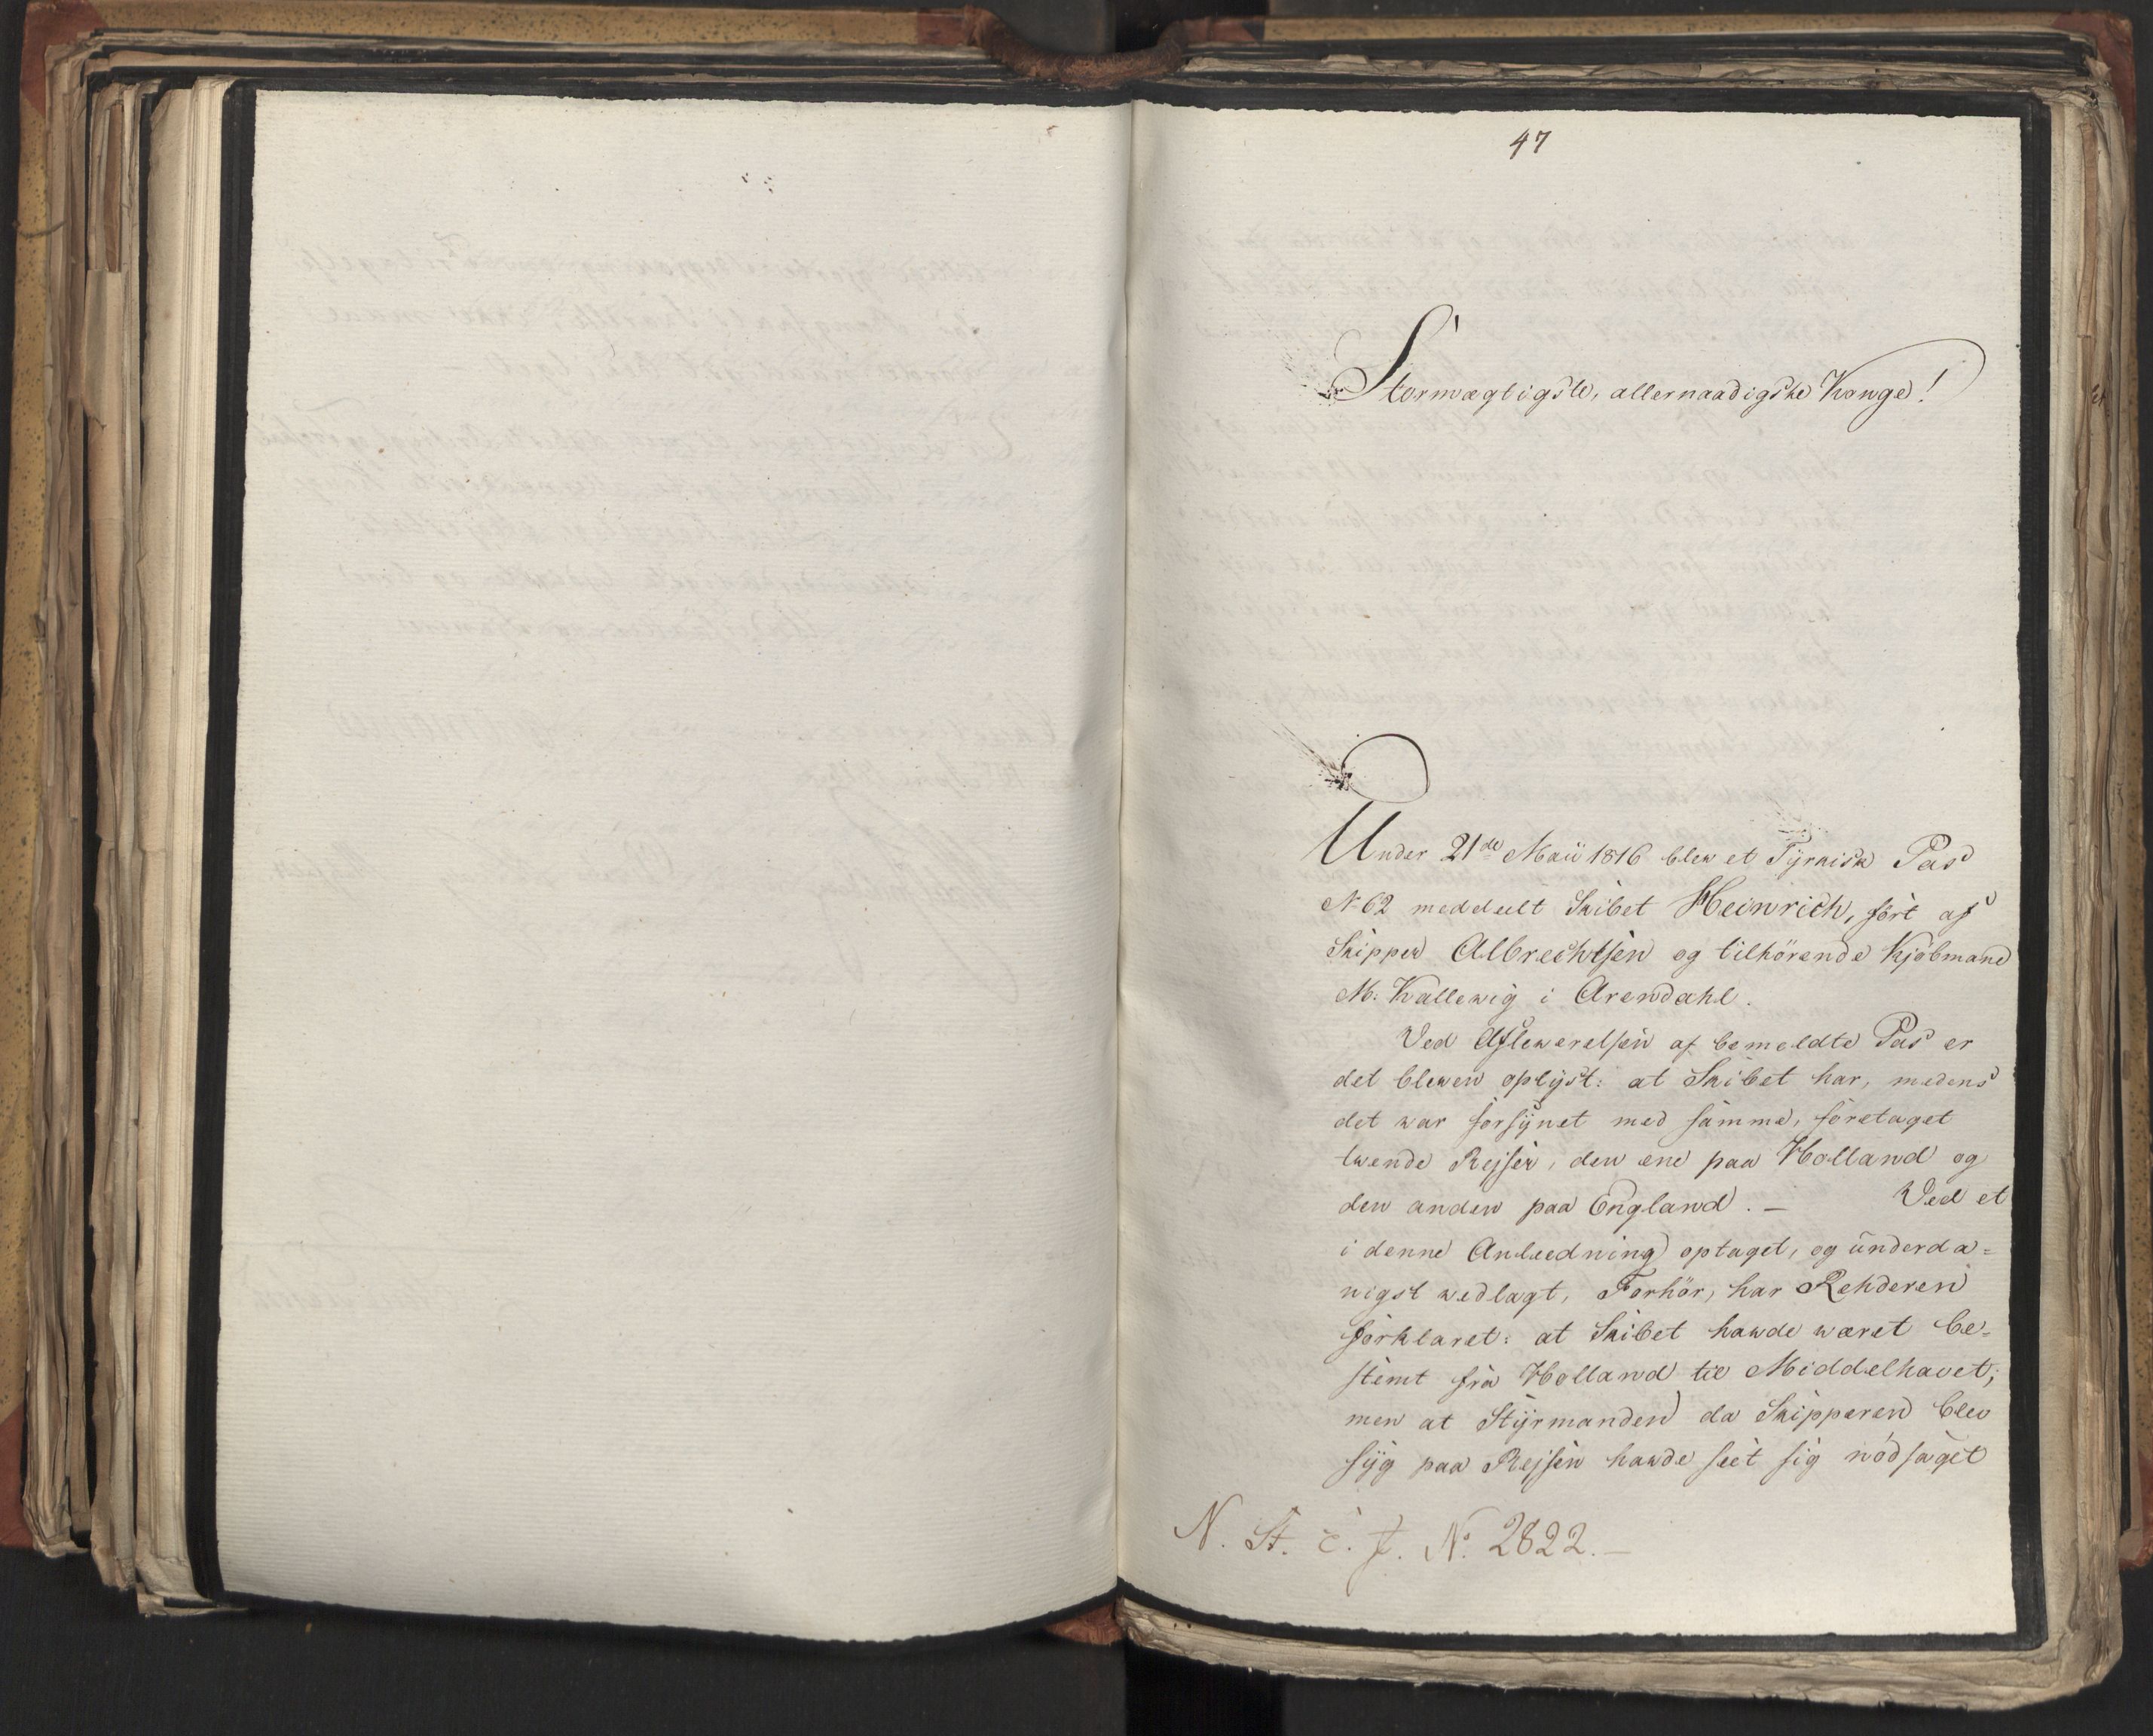 47
Stormægtigste, allernaadigste Konge!
Under 21de Maii 1816 blev et Tÿrkisk Pas
No 62 meddeelt Skibet Heinrich, ført af
Skipper Albrechtsen og tilhørende Kjøbmand
M: Kallewig i Arendahl.
Ved Aflewerelsen af bemeldte Pas er
det blewen oplÿst: at Skibet har, medens
det war forsÿnet med samme, foretaget
twende Rejser, den ene paa Holland og
den anden paa England. — Ved et
i denne Anleedning optaget, og underda=
nigst wedlagt, Forhør, har Rehderen
forklaret: at Skibet hawde wæret be=
stemt fra Holland til Middelhavet;
men at Stÿrmanden da Skipperen blev
sÿg paa Rejsen hawde seet sig nødsaget
N. St. C. J. No. 2822.—